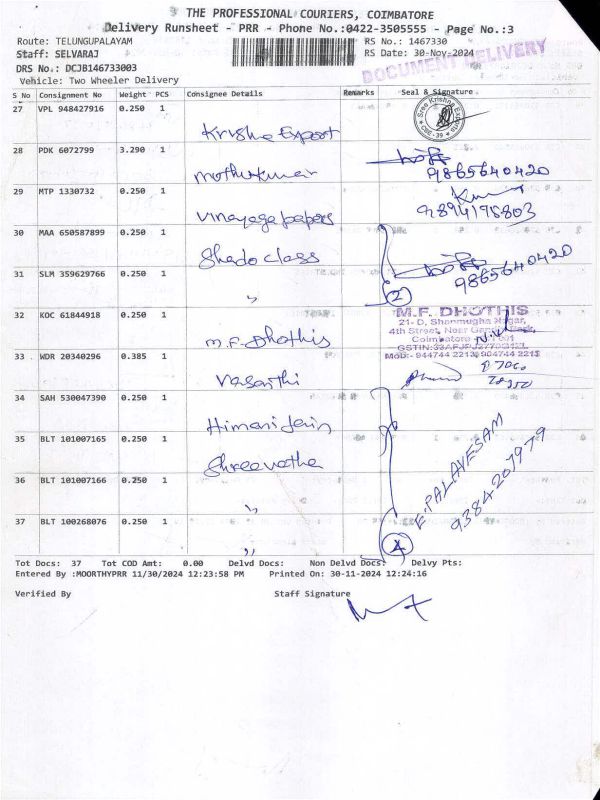 THE PROFESSIONAL COURIERS, COIMBATORE
Delivery Runsheet - PRR - Phone No.:0422-3505555 - Page No.:3
Route: TELUNGUPALAYAM RS No.: 1467330
Staff: SELVARAJ RS Date: 30-Nov-2024
DRS No.: DCJB146733003
DOCUMENT DELIVERY
Vehicle: Two Wheeler Delivery
S No Consignment No Weight PCS Consignee Details Remarks Seal & Signature
27 VPL 948427916 0.250 1
Krishna Export
Sree Krishna Exports
CBE-39
28 PDK 6072799 3.290 1
muthukumar
9865640420
29 MTP 1330732 0.250 1
vinayaga papers
9894198803
30 MAA 650587899 0.250 1
Shado class
31 SLM 359629766 0.250 1
"
9865640420
2
32 KOC 61844918 0.250 1
M.F. Dhothis
M.F. DHOTHIS
21- D, Shanmugha Nagar,
4th Street, Near
Coimbatore
33 WDR 20340296 0.385 1
Vasanthi
34 SAH 530047390 0.250 1
Himani Jain
35 BLT 101007165 0.250 1
Shreevatha
36 BLT 101007166 0.250 1
"
37 BLT 100268076 0.250 1
"
E.PALAYESAM
9384207979
4
Tot Docs: 37 Tot COD Amt: 0.00 Delvd Docs: Non Delvd Docs: Delvy Pts:
Entered By :MOORTHYPRR 11/30/2024 12:23:58 PM Printed On: 30-11-2024 12:24:16
Verified By Staff Signature